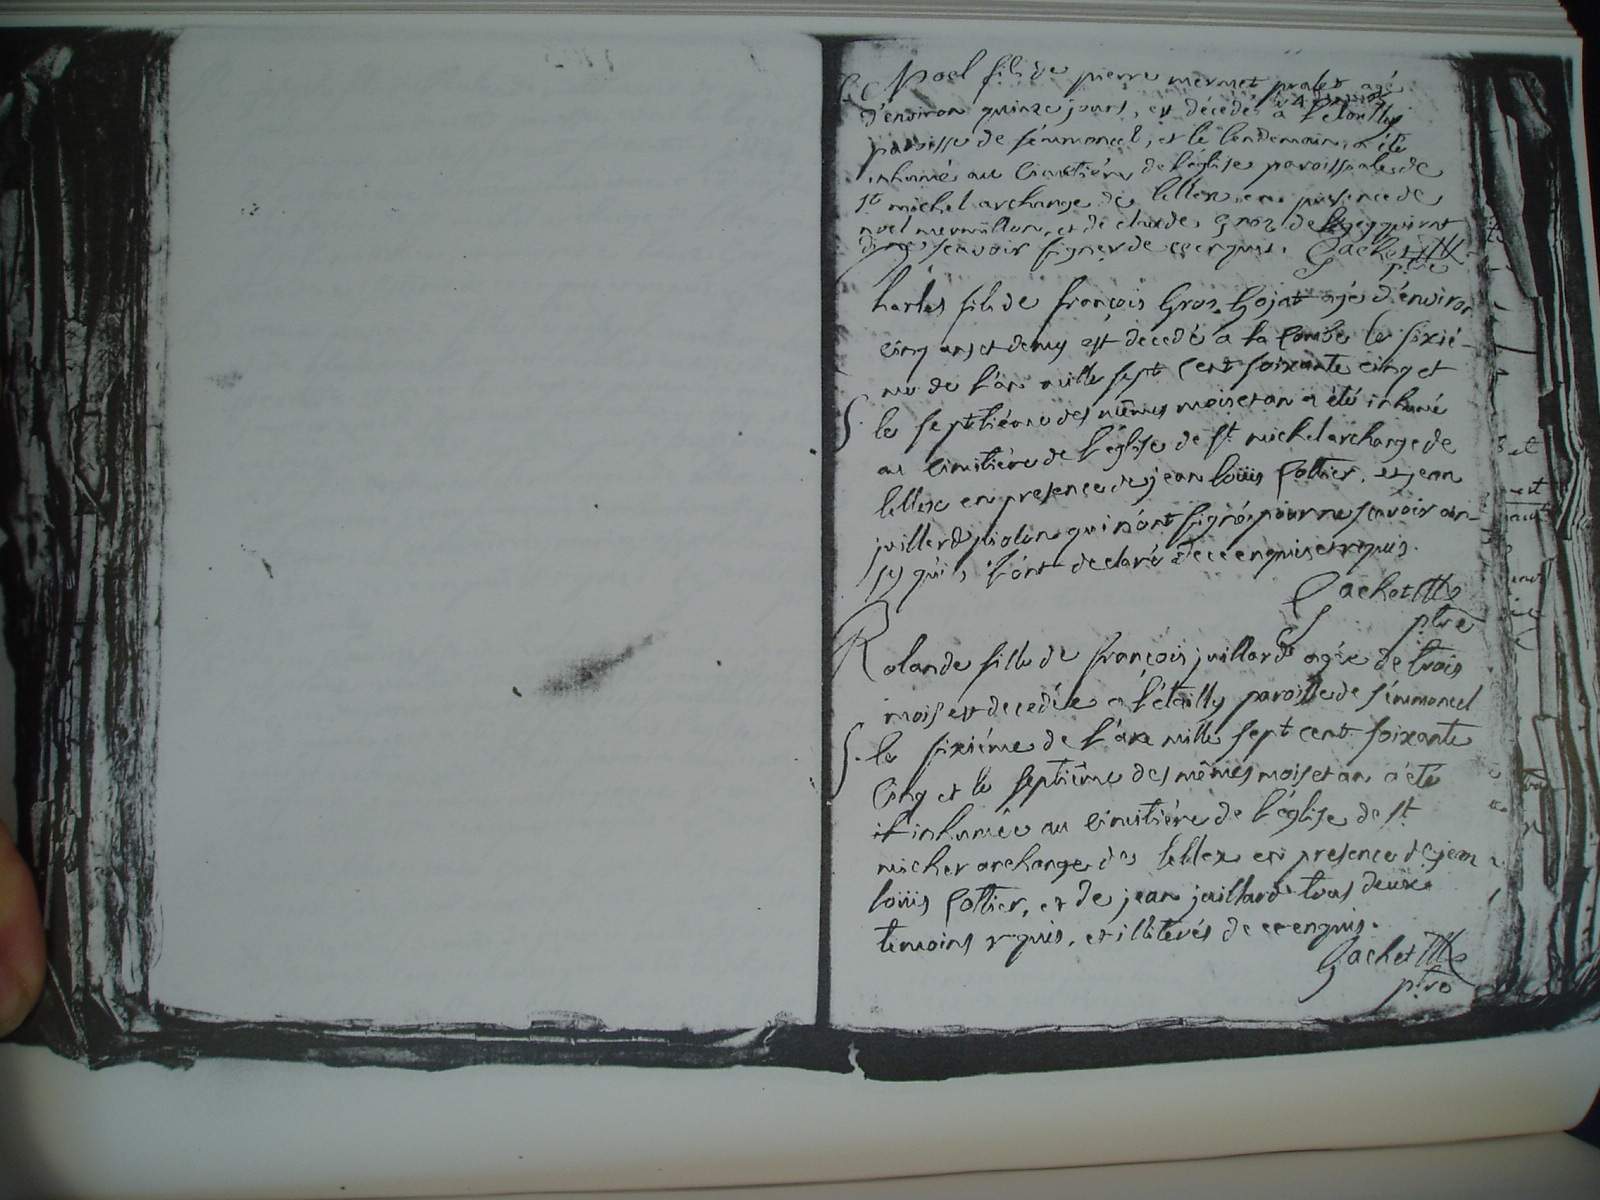 Noel fils de pierre mermet probst agé
d'environ quinze jours, est décédé à l'étailly
paroisse de s'émmoncel, et le lendemain a été
inhumé au cimetiére de l'église paroissiale de
st michel archange de lellex en presence de
noel mermillon, et de claude groz de
signer de ce enquis. Gachet
ptre
harles fils de françois Groz Gojat agé d'environ
cinq ans et demy est decedé a la combe le sixié-
me de l'an mille sept cent soixante cinq et
le septiéme des mêmes mois et an a été inhumé
au cimitiére de l'église de st michel archange de
lellex en presence de jean loüis Cottier, et jean
juillard qui n'ont signé pour ne sçavoir ain-
sy qu'ils l'ont declaré de ce enquis et requis.
Gachet
ptre
Rolande fille de françois juillard agée de trois
mois est decedée a l'étailly paroisse de s'émmoncel
le sixiéme de l'an mille sept cent soixante
cinq et le septiême des mêmes mois et an a été
inhumée au cimitiére de l'église de st
michel archange de lellex en presence de jean
loüis Cottier, et de jean juillard tous deux
temoins requis, et illiterés de ce enquis.
Gachet
ptre